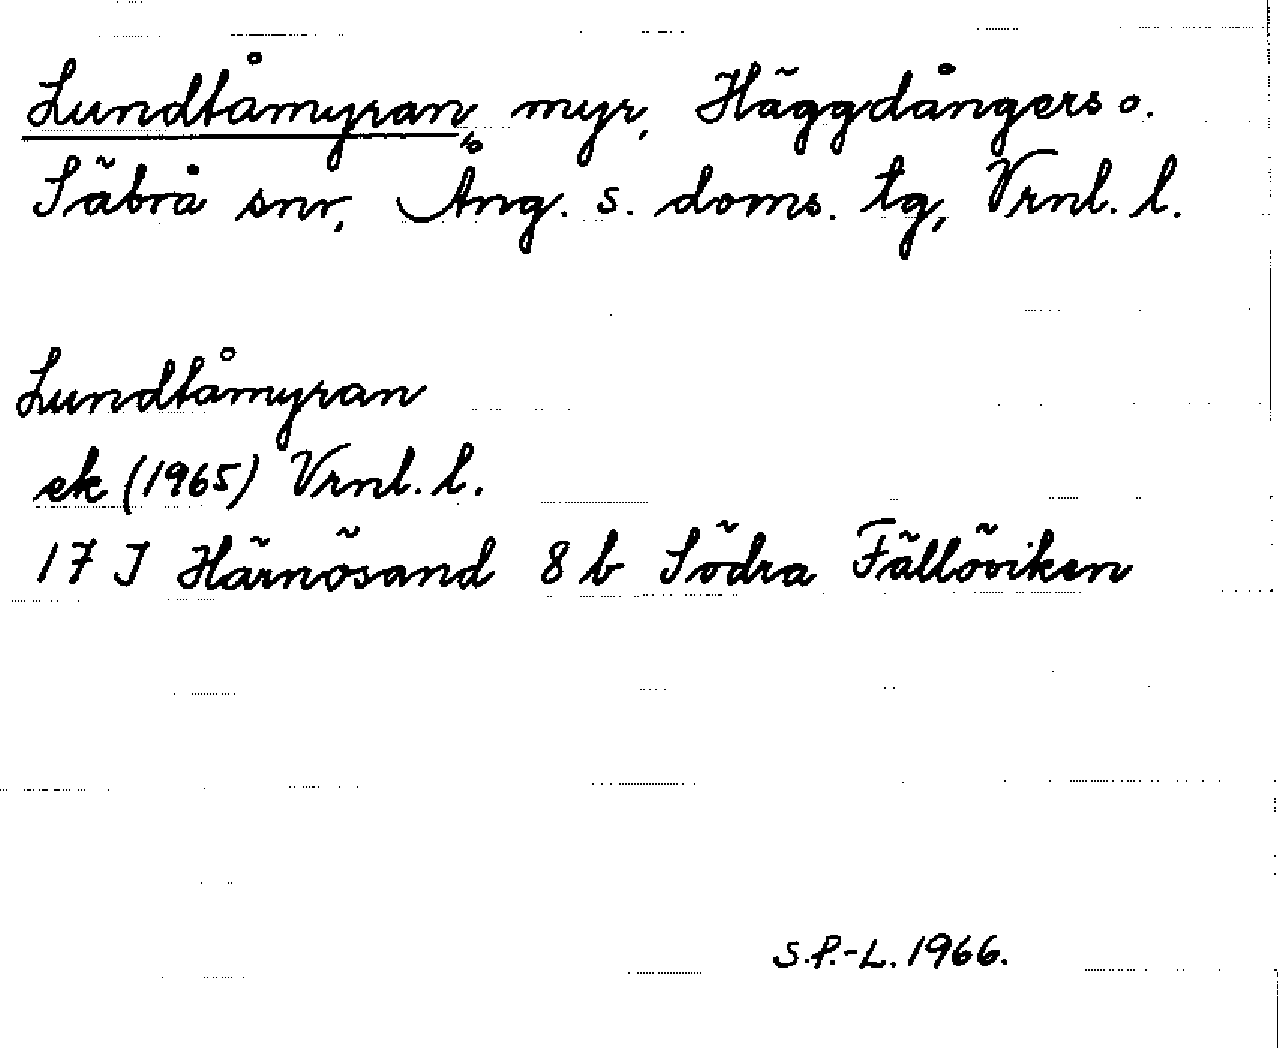 Lundtåmyran, myr, Häggdångers o.
Säbrå snr, Ång. s. doms. tg, Vrnl. l.
Lundtåmyran
ek (1965) Vrnl. l.
17 J Härnösand 8 b Södra Fällöviken
S.P.-L. 1966.